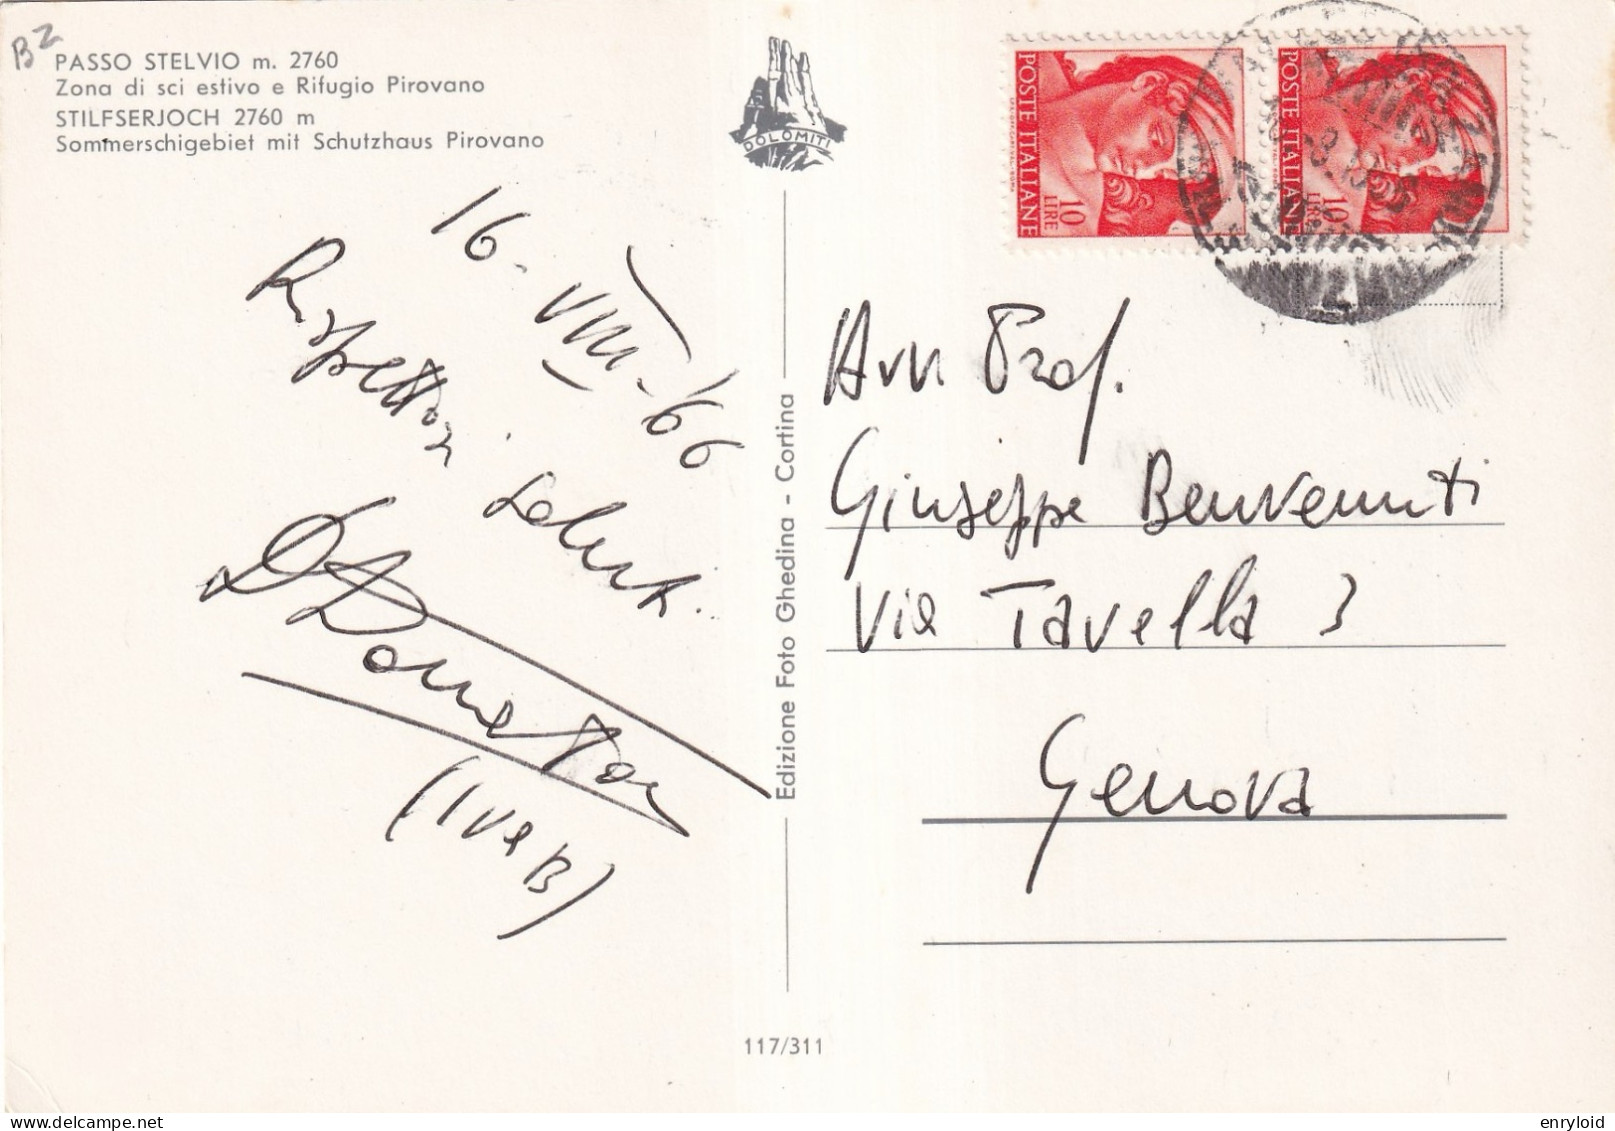 BZ
PASSO STELVIO m. 2760
Zona di sci estivo e Rifugio Pirovano
STILFSERJOCH 2760 m
Sommerschigebiet mit Schutzhaus Pirovano
DOLOMITI
16-VIII-66
Rispettosi saluti.
(IVa B)
Edizione Foto Ghedina - Cortina
117/311
POSTE ITALIANE
10
LIRE
POSTE ITALIANE
10
LIRE
Avv Prof.
Giuseppe Benvenuti
Via Tavella 3
Genova
enryloid
delcampe.net